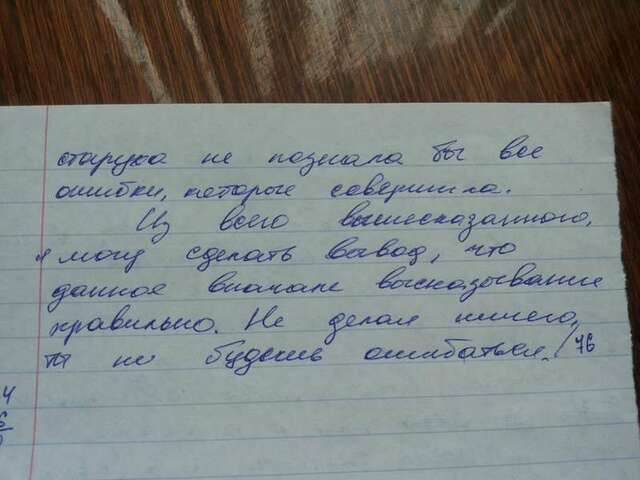 старуха не познала бы все
ошибки, которые совершила.
Из всего вышесказанного,
я могу сделать вывод, что
данное вначале высказывание
правильно. Не делая ничего,
ты не будешь ошибаться. /76
4
6